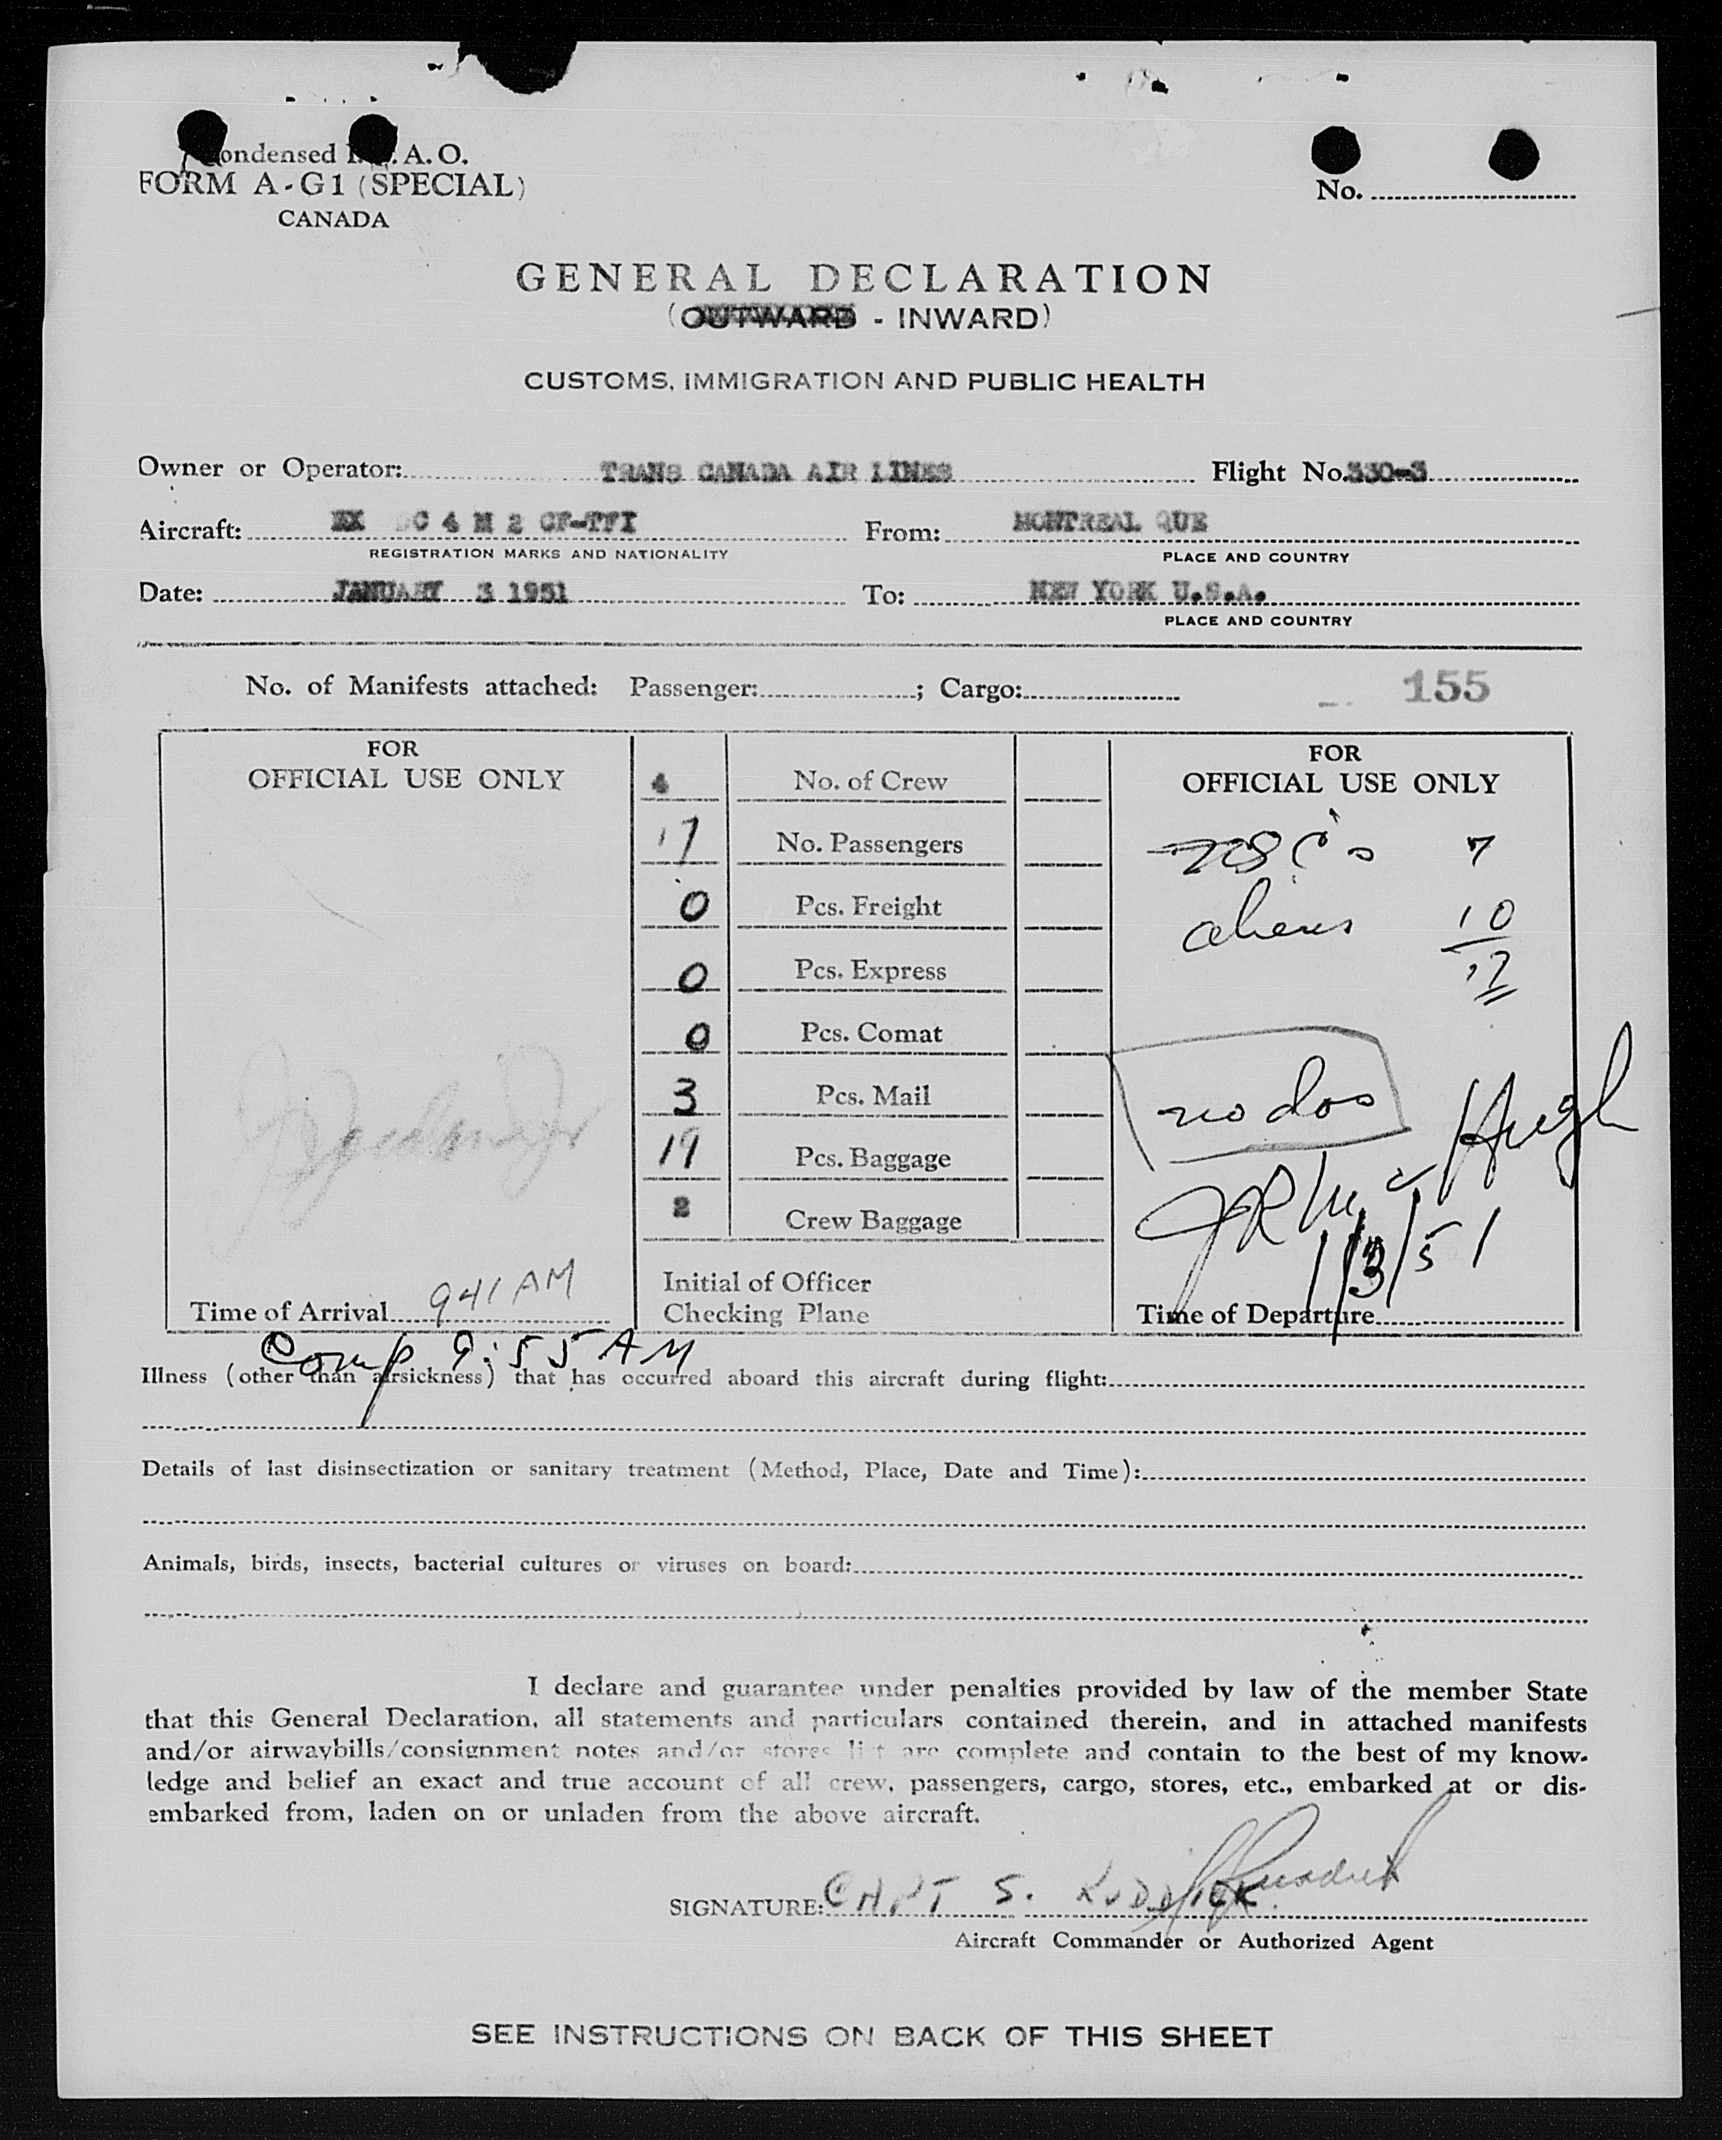 Condensed I.C.A.O.
FORM A-G1 (SPECIAL)
CANADA
No.
GENERAL DECLARATION
(OUTWARD - INWARD)
CUSTOMS, IMMIGRATION AND PUBLIC HEALTH
Owner or Operator: TRANS CANADA AIR LINES Flight No. 330-3
Aircraft: EX DC 4 M 2 CF-TFI From: MONTREAL QUE
REGISTRATION MARKS AND NATIONALITY PLACE AND COUNTRY
Date: JANUARY 3 1951 To: NEW YORK U.S.A.
PLACE AND COUNTRY
No. of Manifests attached: Passenger: ; Cargo: 155
FOR
OFFICIAL USE ONLY
4 No. of Crew
17 No. Passengers
0 Pcs. Freight
0 Pcs. Express
0 Pcs. Comat
3 Pcs. Mail
19 Pcs. Baggage
2 Crew Baggage
Initial of Officer
Checking Plane
Time of Arrival 941 AM
Comp 9:55 AM
FOR
OFFICIAL USE ONLY
7
aliens 10
17
no dos
1/3/51
Time of Departure
Illness (other than airsickness) that has occurred aboard this aircraft during flight:
Details of last disinsectization or sanitary treatment (Method, Place, Date and Time):
Animals, birds, insects, bacterial cultures or viruses on board:
I declare and guarantee under penalties provided by law of the member State
that this General Declaration, all statements and particulars contained therein, and in attached manifests
and/or airwaybills/consignment notes and/or stores list are complete and contain to the best of my know-
ledge and belief an exact and true account of all crew, passengers, cargo, stores, etc., embarked at or dis-
embarked from, laden on or unladen from the above aircraft.
SIGNATURE: CAPT S. RUDDICK
Aircraft Commander or Authorized Agent
SEE INSTRUCTIONS ON BACK OF THIS SHEET